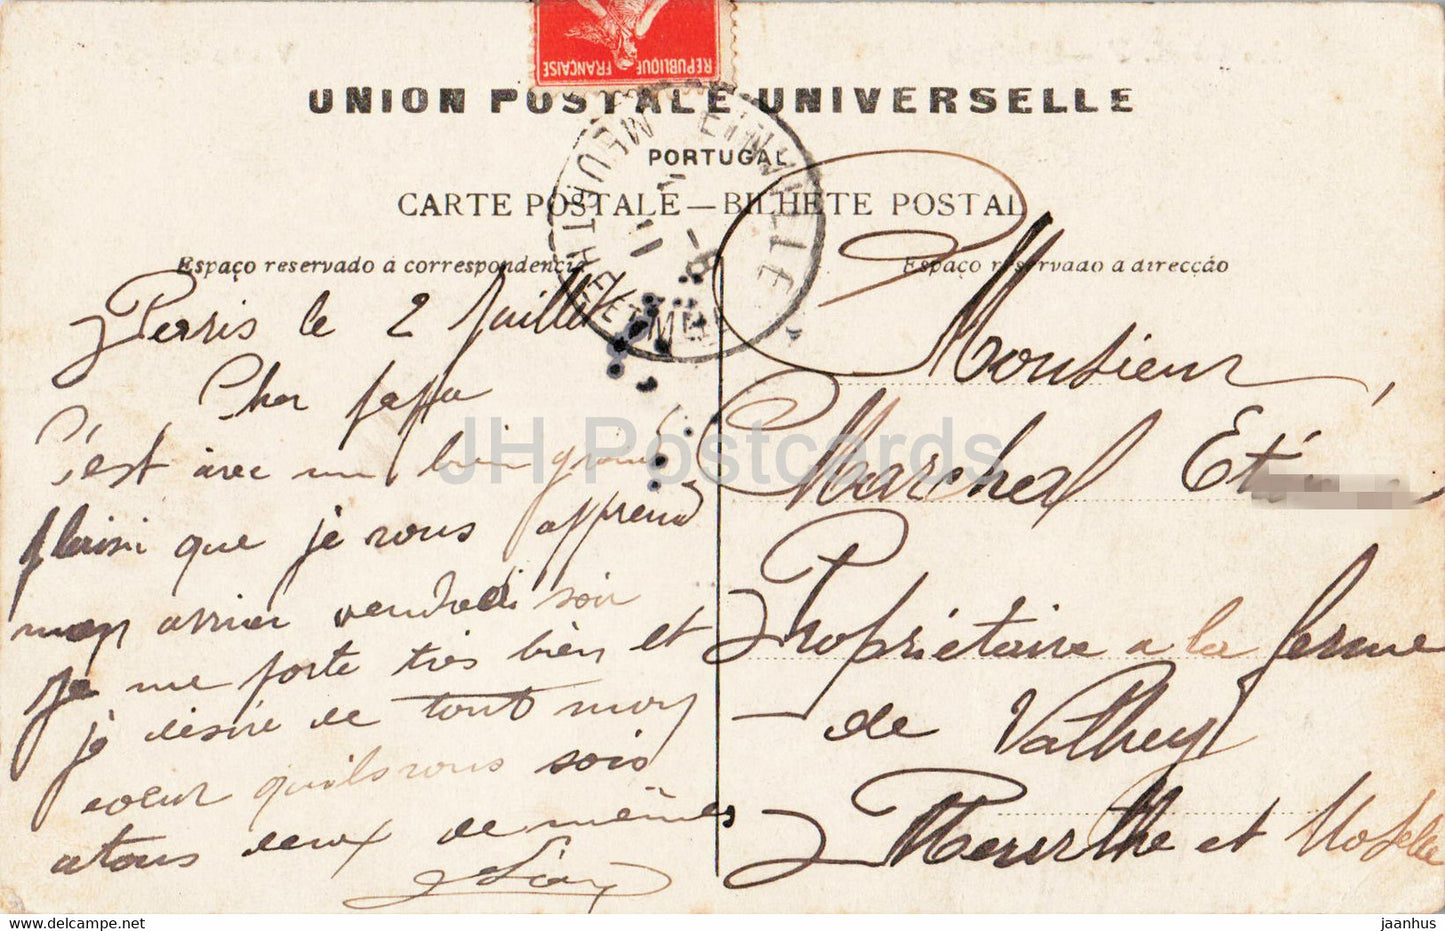 REPUBLIQUE FRANÇAISE
UNION POSTALE UNIVERSELLE
PORTUGAL
CARTE POSTALE — BILHETE POSTAL
Espaço reservado á correspondencia
Espaço reservado a direcção
EINVILLE
MEURTHE ET M
11
Perris le 2 Juillet
Cher papa
C'est avec un bien grand
plaisir que je vous apprend
mon arriver vendredi soir
je me porte très bien et
je désire de tout mon
coeur qu'ils vous sois
atous deux de mêmes
Léon
Monsieur
Marchal
Propriétaire a la ferme
de Valhey
Meurthe et Moselle
JH Postcards
jaanhus.com
jaanhus